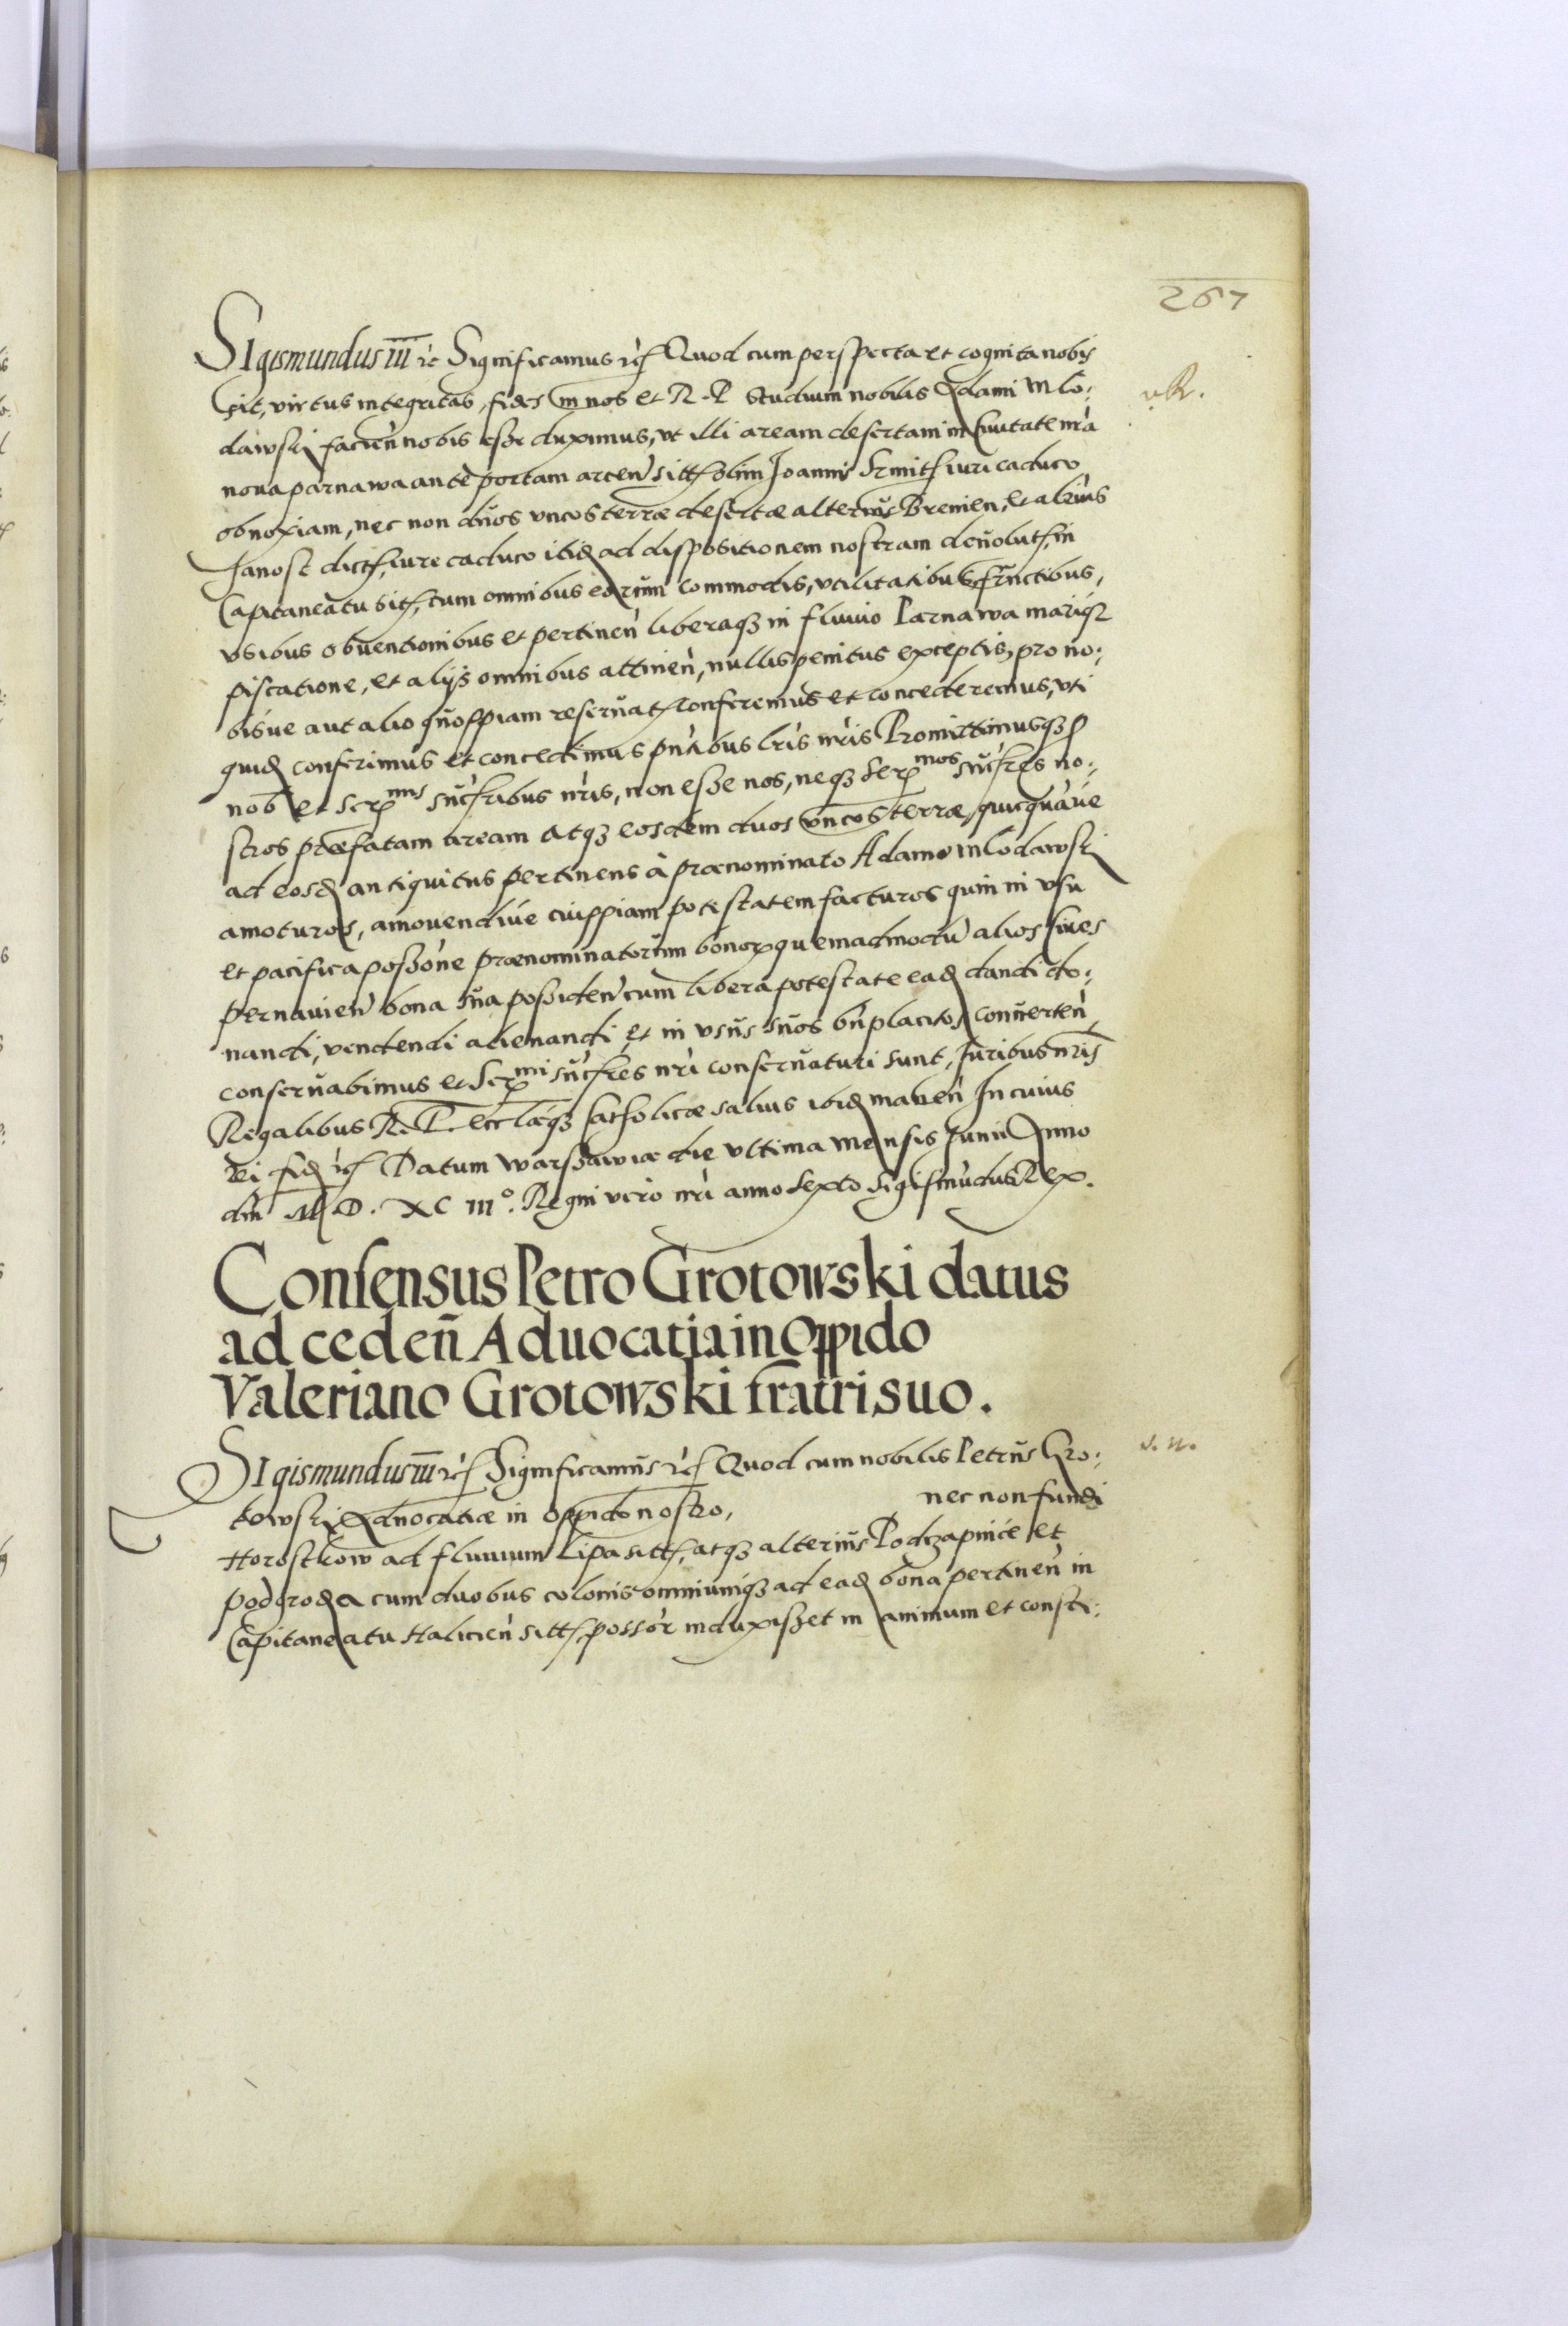 267
SIgismundus III etc Significamus etc Quod cum perspecta et cognita nobis
sit, virtus integritas, fides in nos et R. P. studium nobilis Adami Mlo:
dawski facien̄ nobis esse duximus, vt illi aream desertam in Ciuitate nr̄a
noua parnawa ante portam arcen̄ sitt olim Joannis Smit iuri caduco
obnoxiam, nec non duos vncos terræ desertæ alterius Bremen, et alius
Janost dict, iure caduco ibid ad dispositionem nostram deuolut, in
Capitaneatu sit, cum omnibus eorum commodis, vtilitatibus fructibus,
vsibus obuentionibus et pertinen̄ liberaq3 in fluuio Parnawa mariq3
piscatione, et alijs omnibus attinen̄, nullis penitus exceptis, pro no:
bisue aut alio quospiam reseruat conferemus et concederemus, vti
quid conferimus et concedimus pn̄tibus lrīs nrīs Promittimusq3 p
nob et Ser mis succribus nrīs, non esse nos, neq3 Ser mos succres no:
stros præfatam aream atq3 eosdem duos vncos terræ, quicquāue
ad eosd antiquitus pertinens à prænominato Adamo Mlodawski
amoturos, amouendiue cuippiam potestatem facturos quin in vsu
et pacifica possōne prænominatorum bonor quemadmodū alios Ciues
pernauien̄ bona sua possiden̄ cum libera potestate ead dandi do:
nandi, vendendi alienandi, et in vsus suos bn̄placitos conuerten̄
conseruabimus et Ser mi succres nrī conseruaturi sunt, Juribus nrīs
Regalibus R. P. Ecclæq3 Catholicæ saluis ibid manen̄ In cuius
rei fid etc Datum Warssawiæ die vltima mensis Junii Anno
dn̄i M. D. XC IIIº. Regni vero nrī anno sexto Sigismūdus Rex.
v.R.
Consensus Petro Grotowski datus
ad ceden̄ Aduocatia in Oppido
Valeriano Grotowski fratri suo.
SIgismundus III etc Significamus etc Quod cum nobilis Petrus Gro:
towski Aduocatiæ in oppido nostro, nec non fundi
Horostkow ad fluuium Lipa sitt, atq3 alterius Podzapnicē et
podgrodza cum duobus colonis omniumq3 ad ead bona pertinen̄ in
Capitaneatu Halicien̄ sitt, possor̄ induxisset in animum et consti:
s. n.